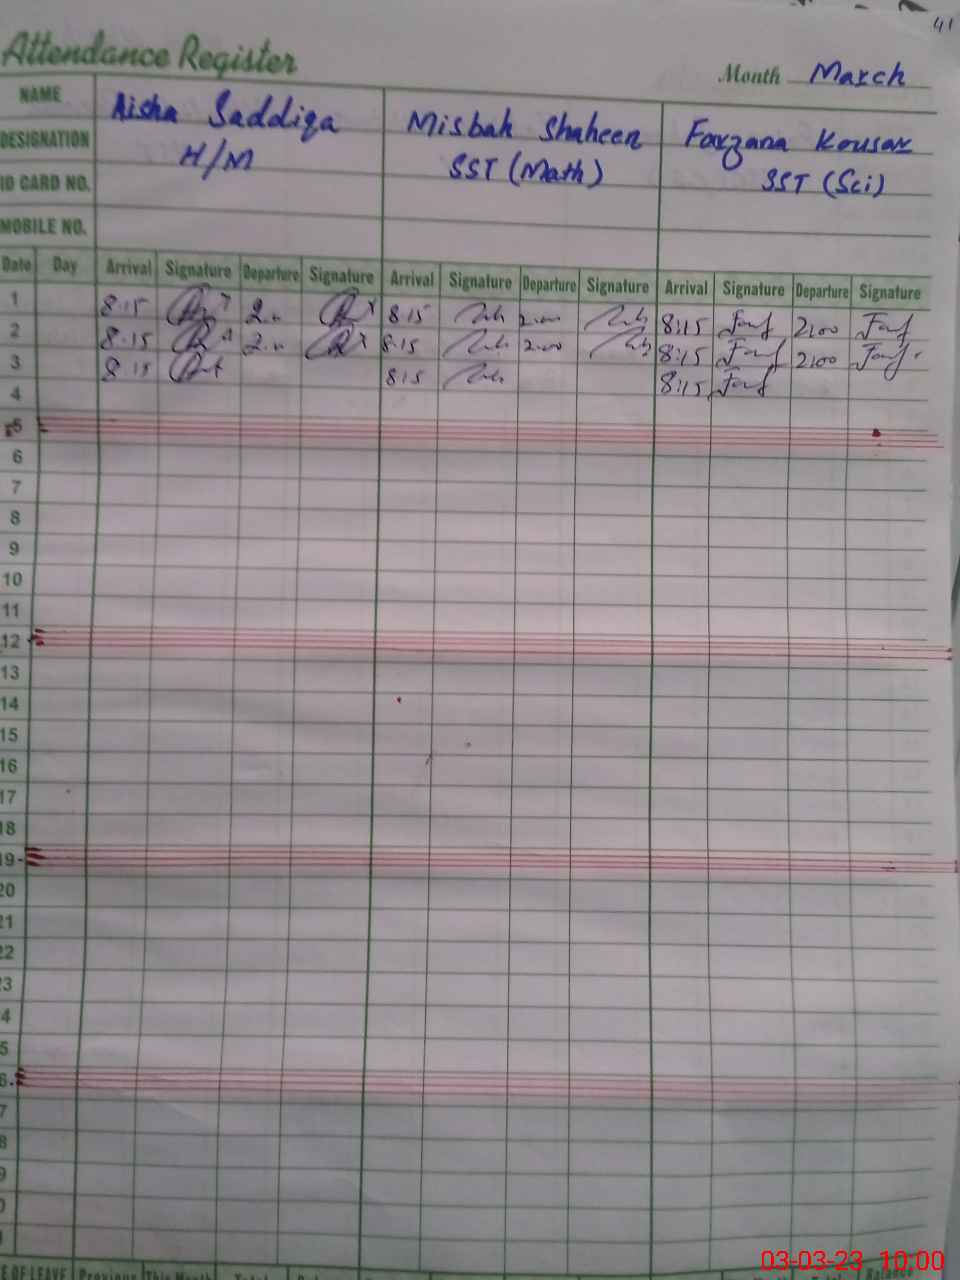 41
Attendance Register
Month March
NAME Aisha Saddiqa Misbah Shaheen Farzana Kousar
DESIGNATION H/M SST (Math) SST (Sci)
ID CARD NO.
MOBILE NO.
Date Day Arrival Signature Departure Signature Arrival Signature Departure Signature Arrival Signature Departure Signature
1 8:15 8:15 2:00 8:15 2:00
2 8:15 8:15 2:00 8:15 2:00
3 8:15 8:15 8:15
4
5
6
7
8
9
10
11
12
13
14
15
16
17
18
19
20
21
22
23
4
5
6
7
8
9
0
E OF LEAVE Previous This Month Total
03-03-23 10:00